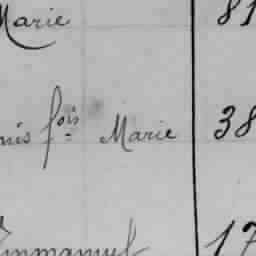 Marie 81
nis fois Marie 38
Emmanuel 17